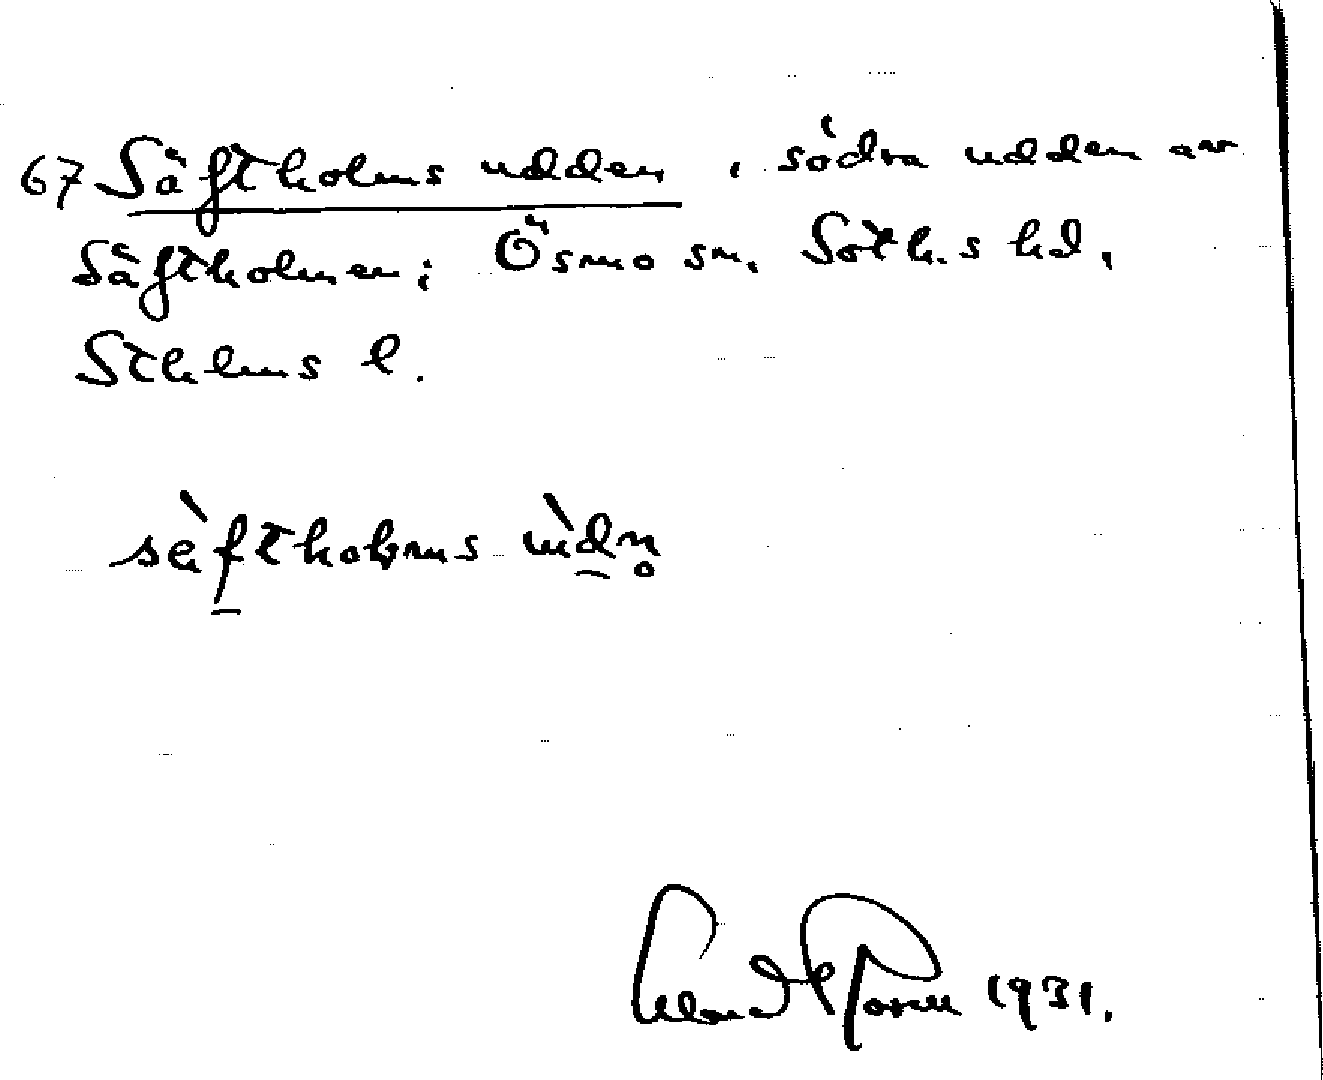 67 Säftholms udden, södra udden av
Säftholmen; Ösmo sn. Soth.s hd,
Sthlms l.
sèftholms ùdn̥
1931.